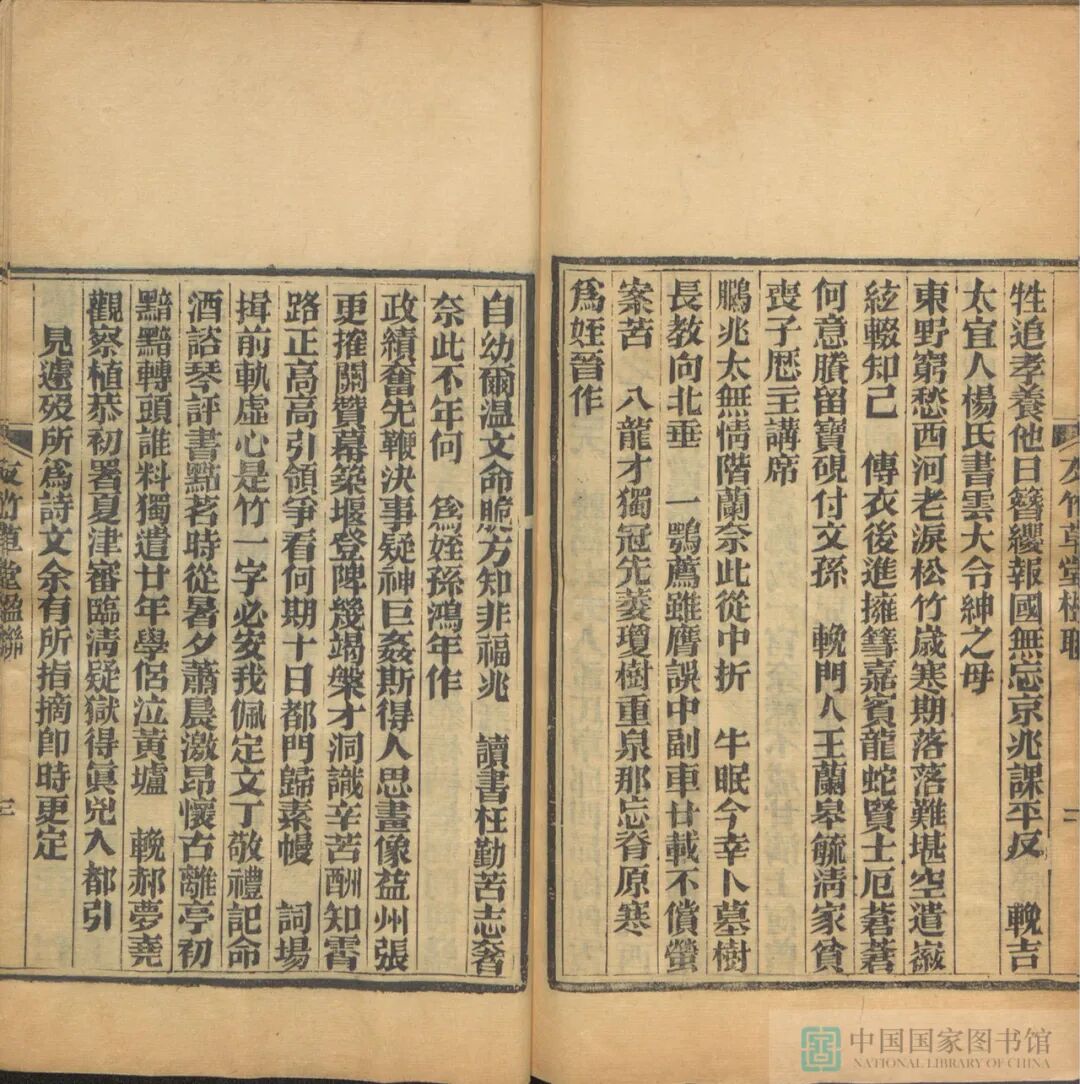 友竹草堂楹聯
二
牲追孝養他日簪纓報國無忘京兆課平反 輓吉
太宜人楊氏書雲大令紳之母
東野窮愁西河老淚松竹歲寒期落落難堪空遣嶽
絃輟知己 傳衣後進擁篲嘉賓龍蛇賢士厄蒼蒼
何意賸留寶硯付文孫 輓門人王蘭皋毓淸家貧
喪子歷主講席
鵬兆太無情階蘭奈此從中折 牛眠今幸卜墓樹
長教向北垂 一鶚薦雖膺誤中副車廿載不償螢
案苦 八龍才獨冠先萎瓊樹重泉那忘脊原寒
爲姪晉作
自幼爾溫文命脆方知非福兆 讀書枉勤苦志奢
奈此不年何 爲姪孫鴻年作
政績奮先鞭決事疑神巨姦斯得人思畫像益州張
更摧關贊幕築堰登陴幾竭槃才洞識辛苦酬知霄
路正高高引領爭看何期十日都門歸素幔 詞場
揖前軌虛心是竹一字必安我佩定文丁敬禮記命
酒談琴評書點茗時從暑夕蕭晨激昂懷古離亭初
黯黯轉頭誰料獨遺廿年學侶泣黃壚 輓郝夢堯
觀察植恭初署夏津審臨淸疑獄得眞兇入都引
見遽歿所爲詩文余有所指摘卽時更定
友竹草堂楹聯
三
中国国家图书馆
NATIONAL LIBRARY OF CHINA